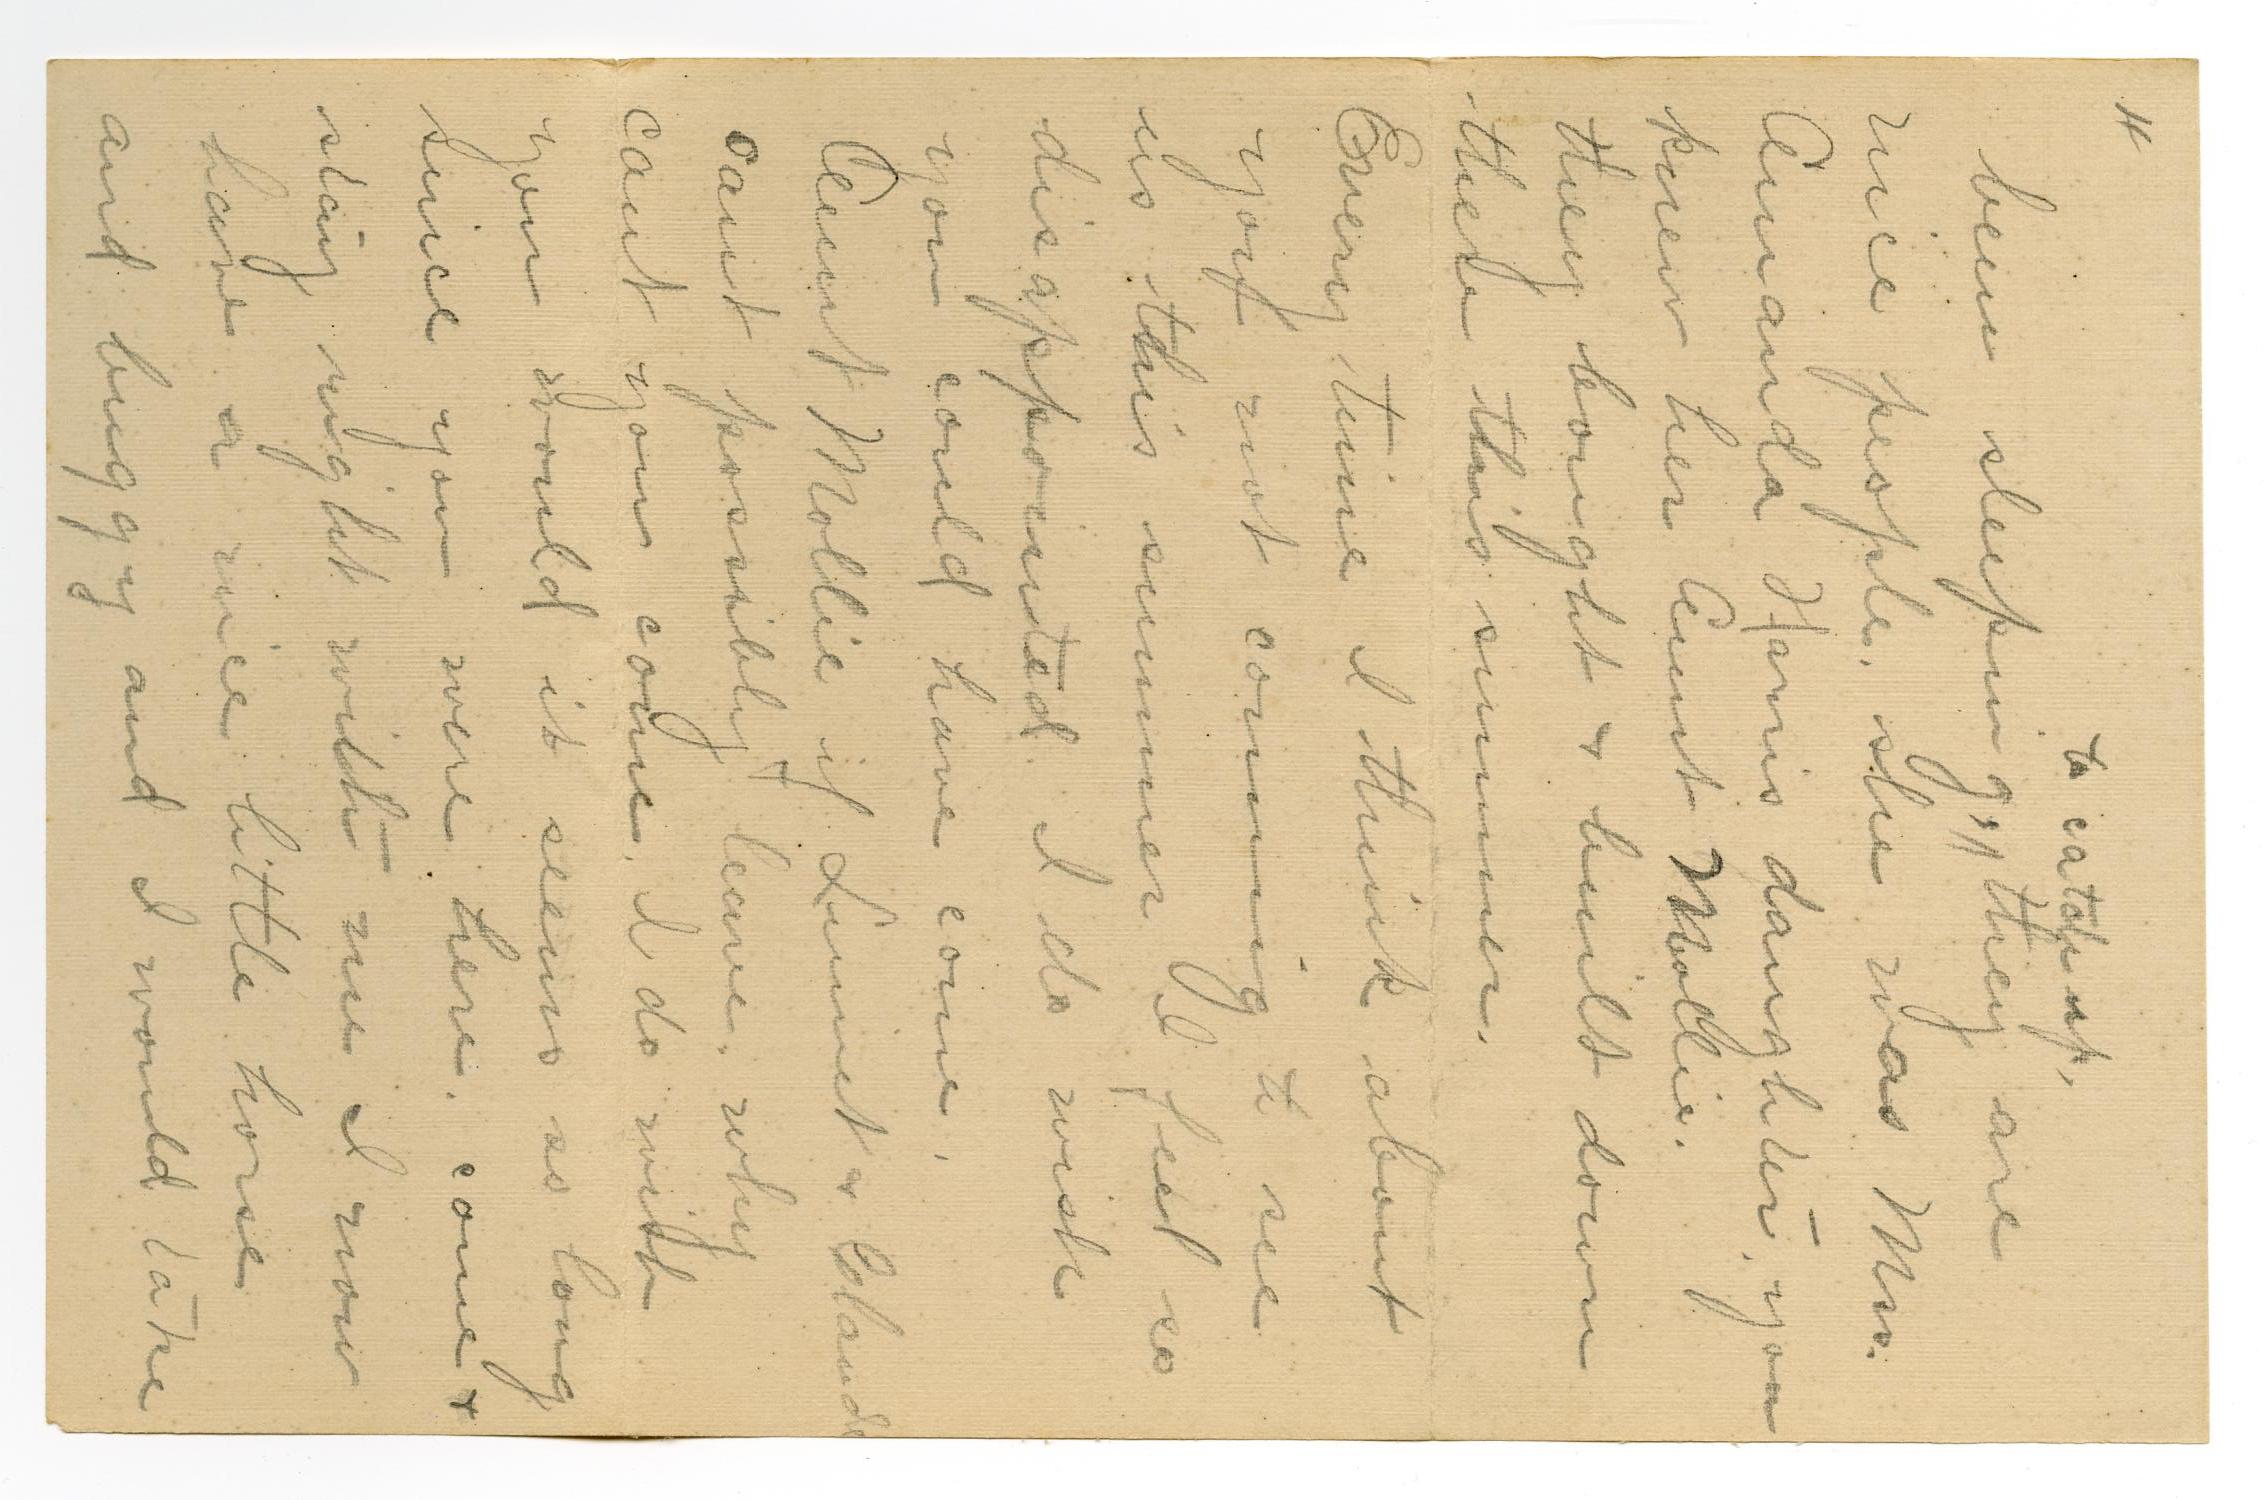 4
to catch up,
bein sleeping", they are
nice people, she was Mrs.
Amanda Harris daughter, you
knew her Aunt Mollie.
they bought & built down
there this summer.
Every time I think about
you not comming to see
us this summer I feel so
disappointed. I do wish
you could have come.
Aunt Mollie if Linnet & Claude
cant possibly leave, why
cant you come, I do wish
you would it seems so long
since you were here, come &
stay right with me I now
have a nice little horse
and buggy and I would take